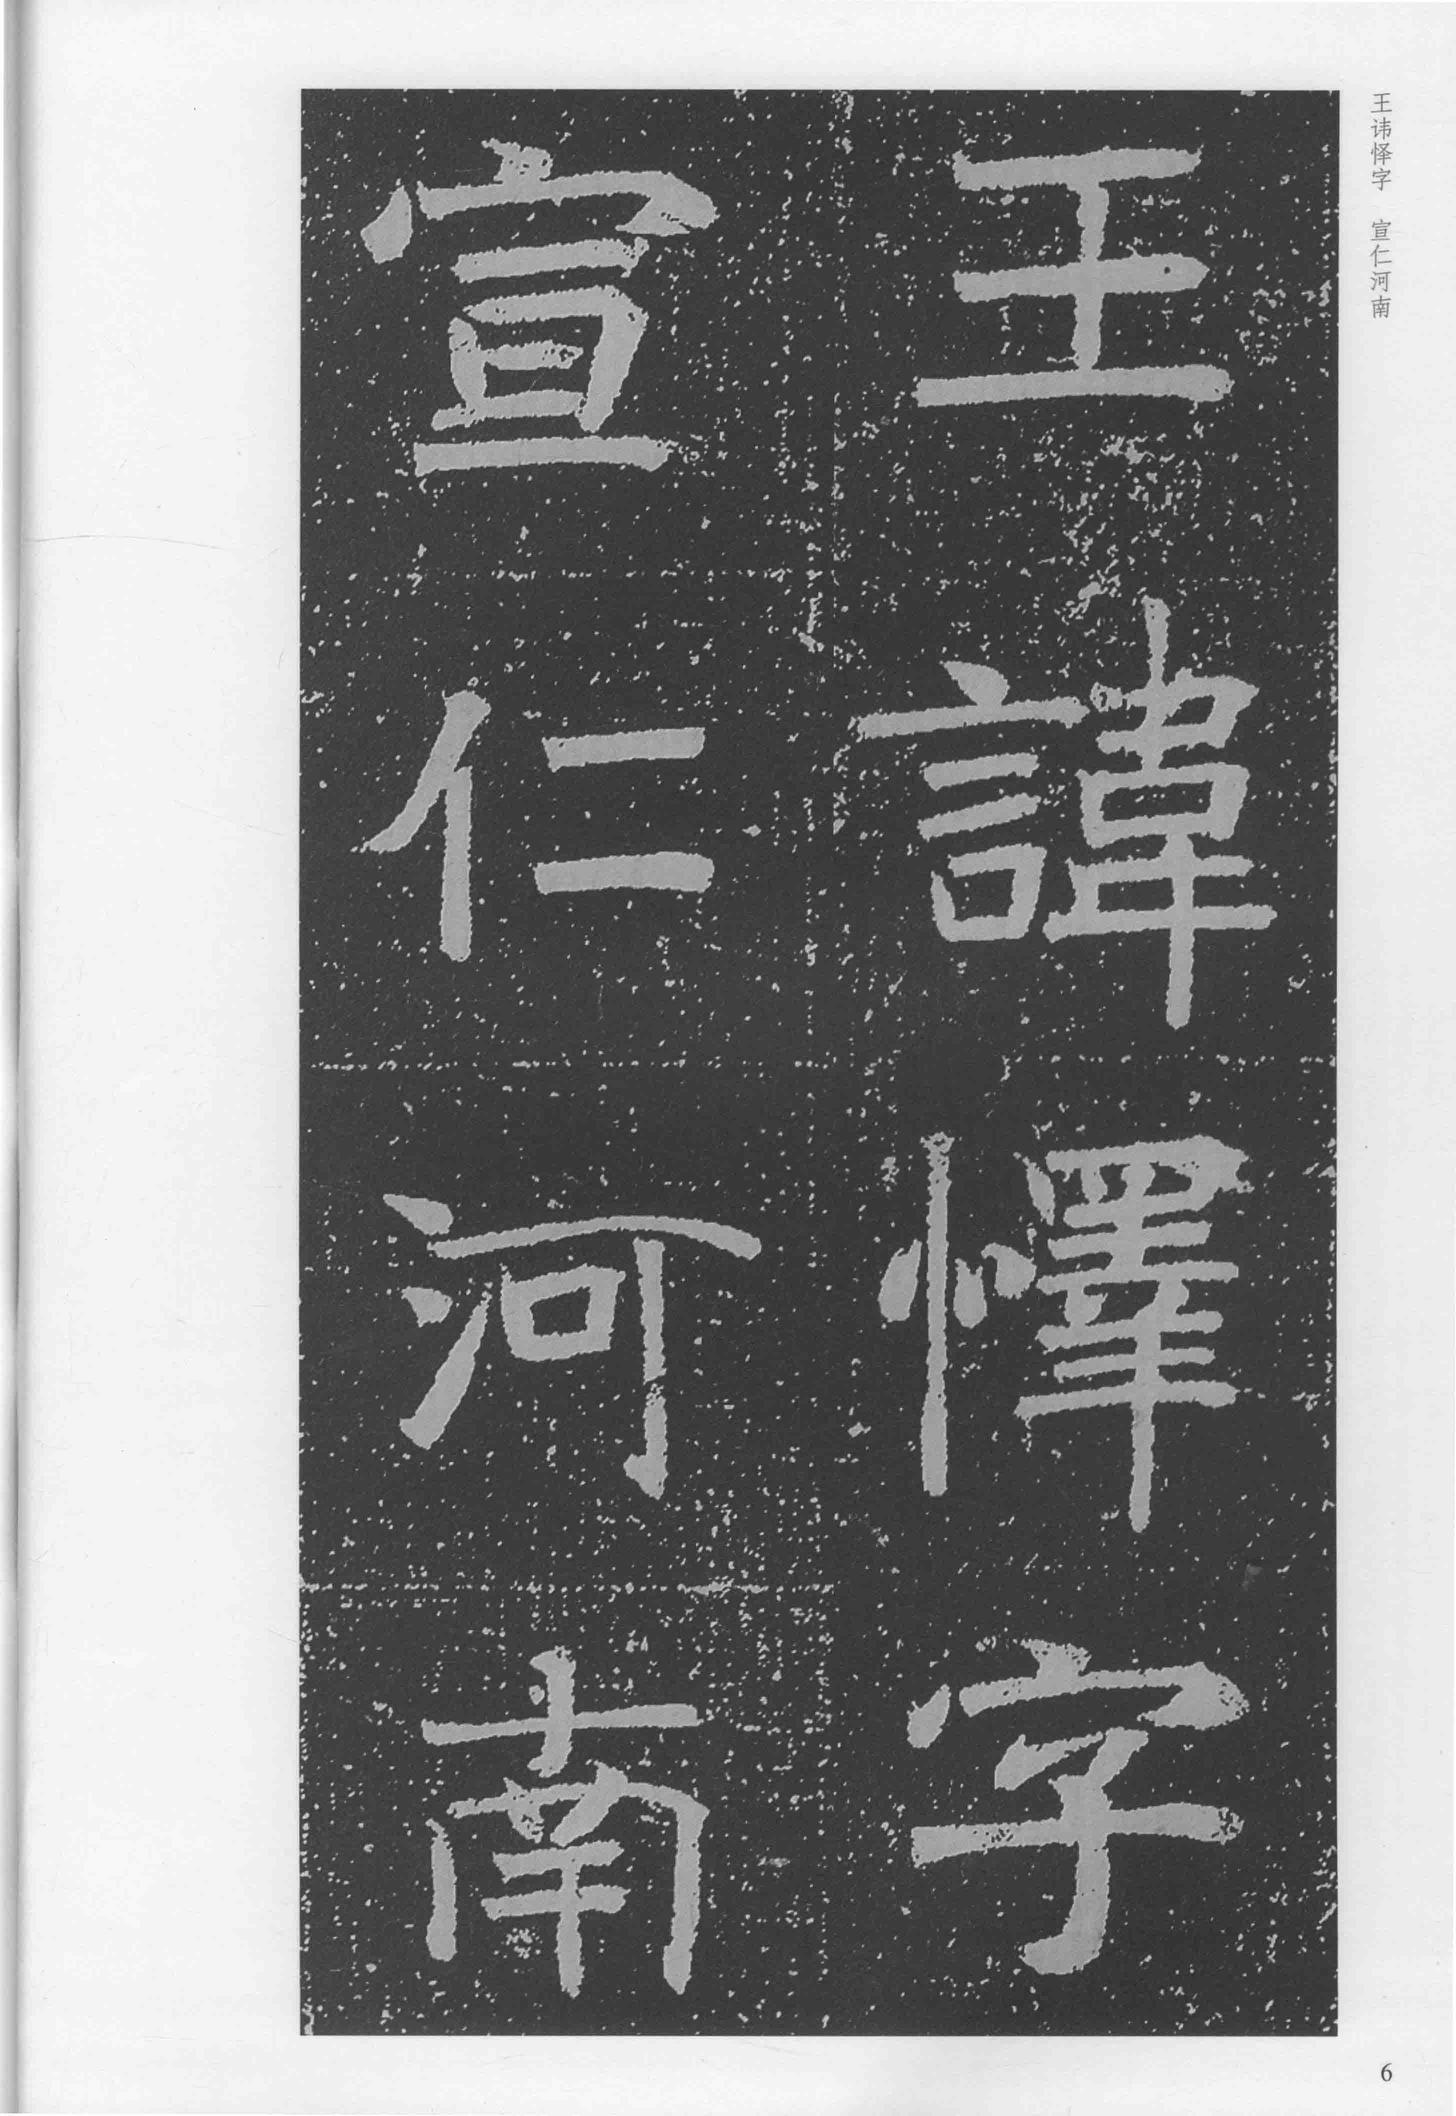 王讳怿字 宣仁河南
王諱懌字
宣仁河南
6